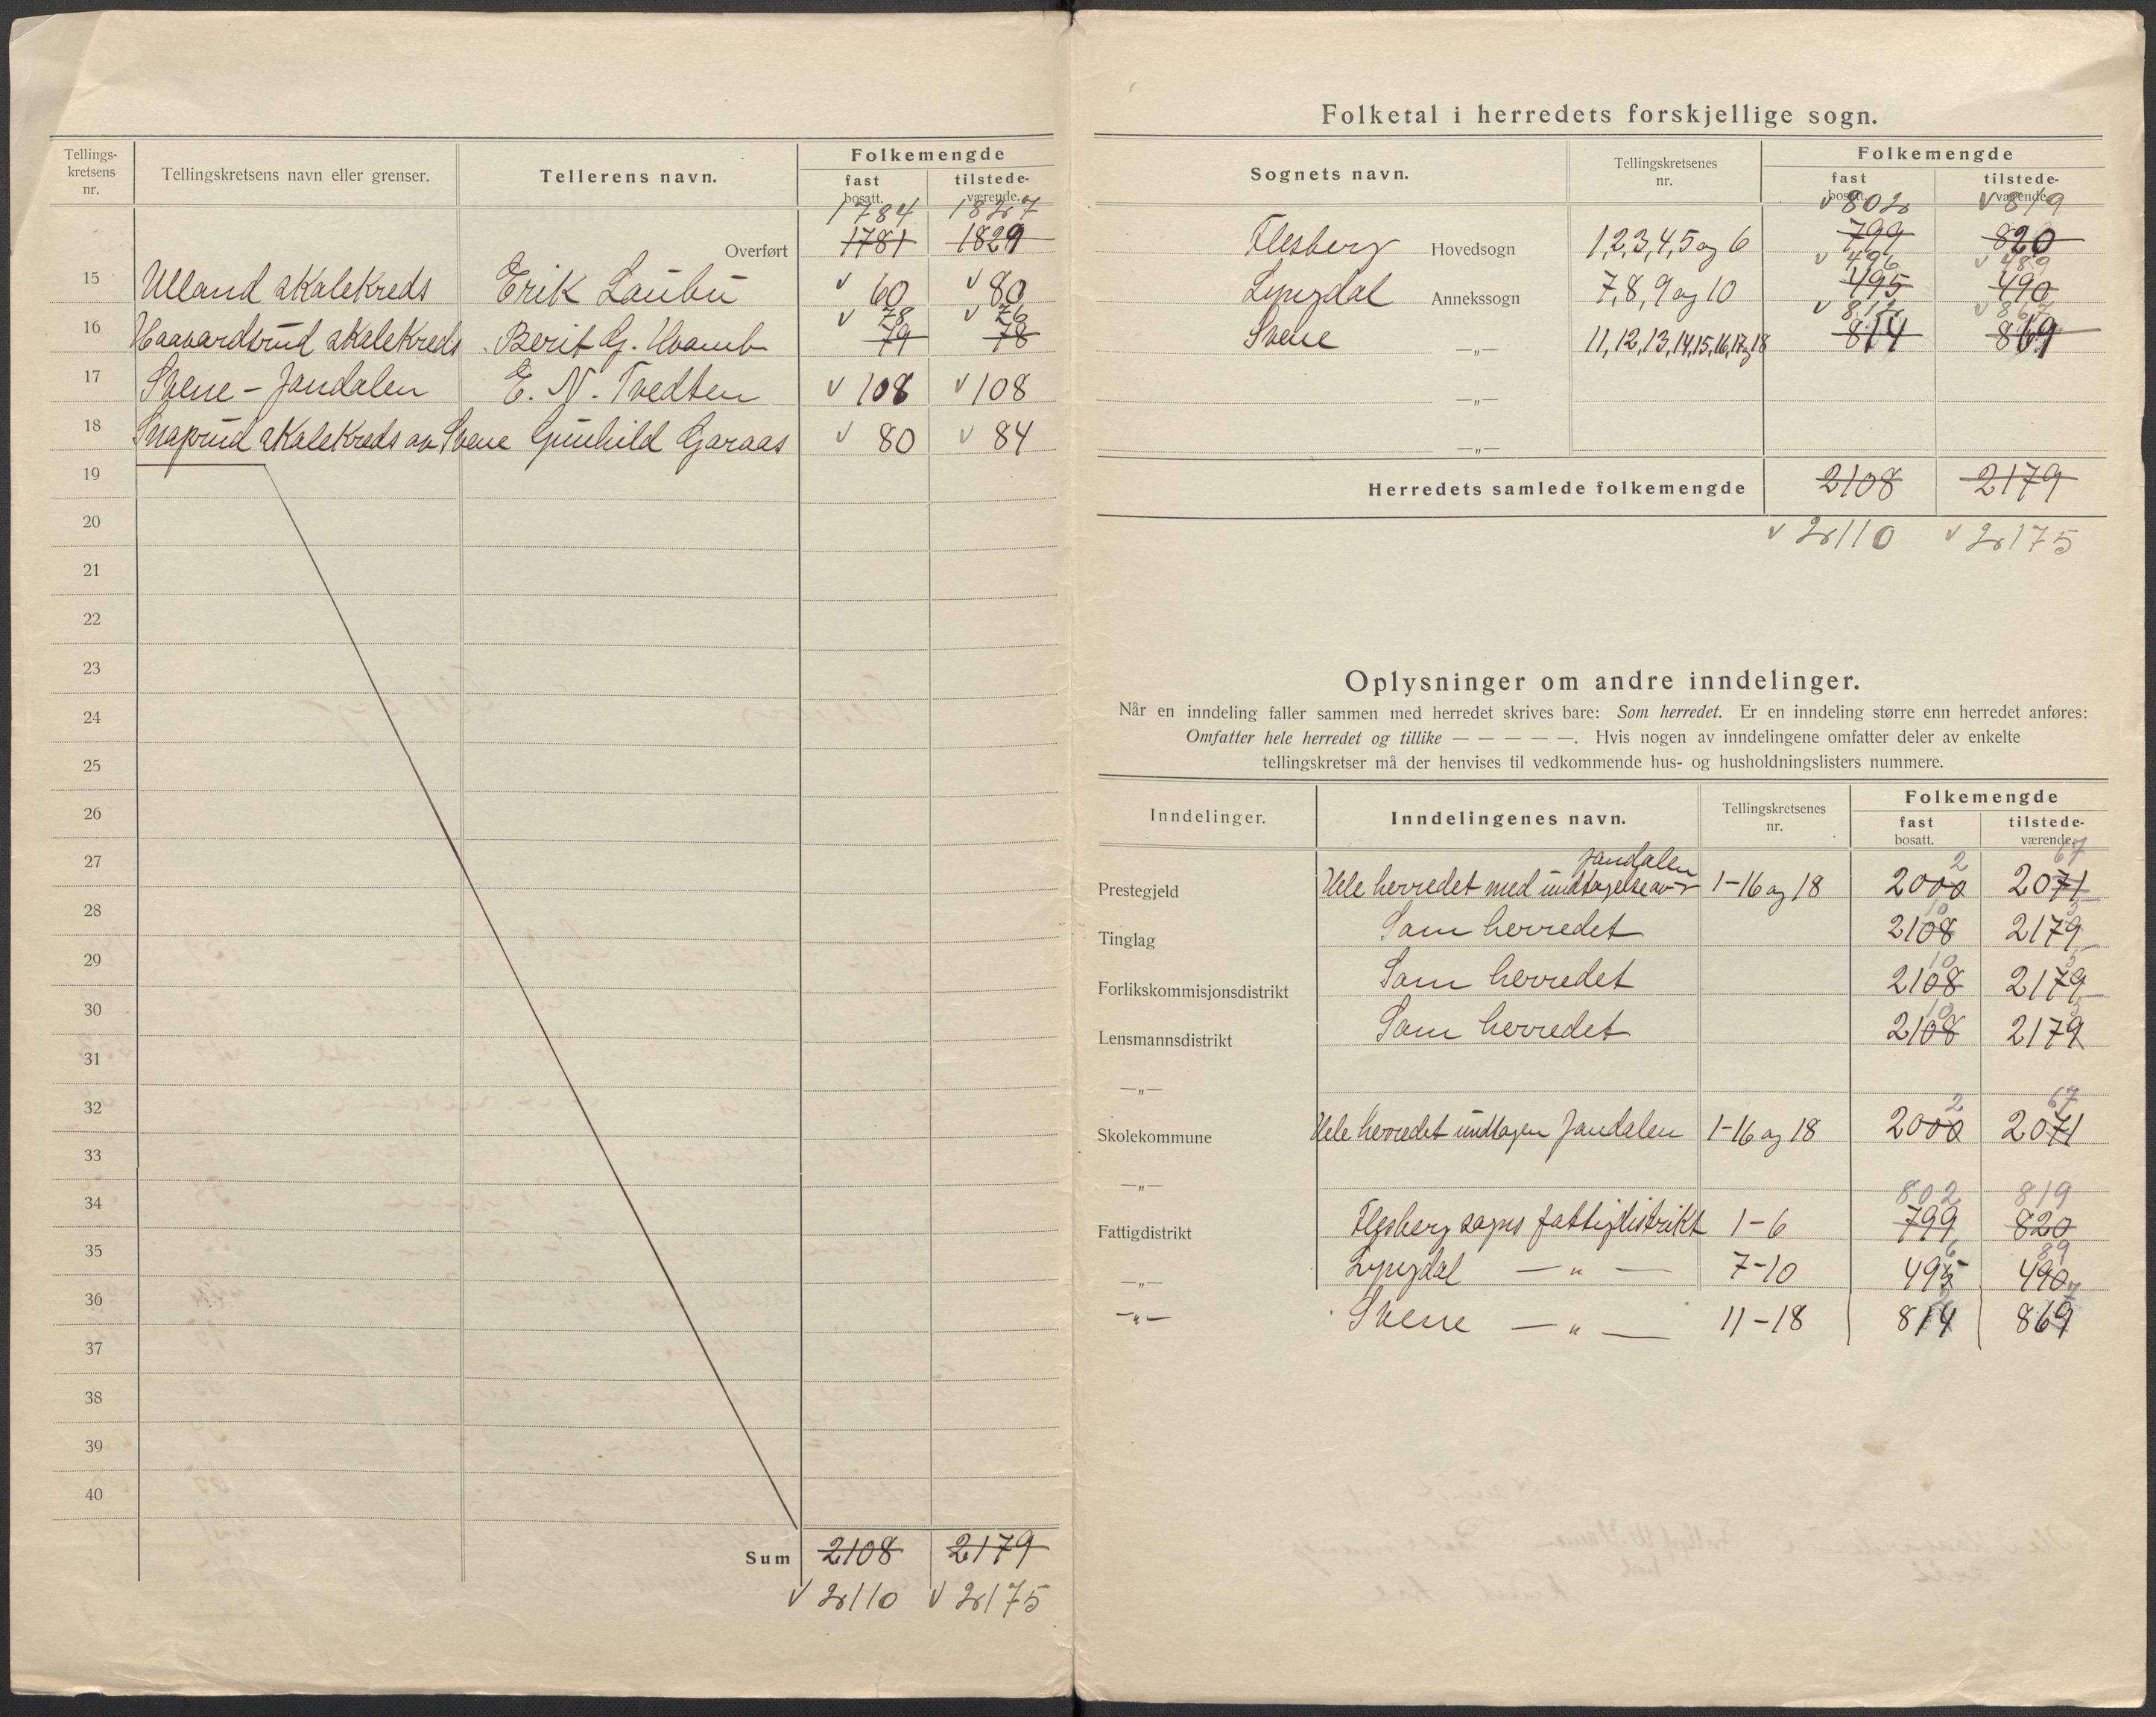 Tellings-
kretsens
nr.
Tellingskretsens navn eller grenser.
Tellerens navn.
Folkemengde
fast
bosatt.
tilstede-
værende.
1784 1827
Overført 1781 1829
15 Ulland skalekreds Erik Laubu v 60 v 80
v 78 v 76
16 Haavardsrud skalekreds Berit G. Hvamb 79 78
17 Svene - Jondalen E. N. Tvedten v 108 v 108
18 Snaprud skalekreds av Svene Gunhild Garaas v 80 v 84
19
20
21
22
23
24
25
26
27
28
29
30
31
32
33
34
35
36
37
38
39
40
Sum 2108 2179
v 2110 v 2175
Folketal i herredets forskjellige sogn.
Sognets navn.
Tellingskretsenes
nr.
Folkemengde
fast
bosatt.
tilstede-
værende.
v 802 v 819
Flesberg Hovedsogn 1,2,3,4,5 og 6 799 820
v 496 v 489
Lyngdal Annekssogn 7,8,9 og 10 495 490
v 812 v 867
Svene —„— 11,12,13,14,15,16,17 og 18 814 869
—„—
—„—
Herredets samlede folkemengde 2108 2179
v 2110 v 2175
Oplysninger om andre inndelinger.
Når en inndeling faller sammen med herredet skrives bare: Som herredet. Er en inndeling større enn herredet anføres:
Omfatter hele herredet og tillike — — — — —. Hvis nogen av inndelingene omfatter deler av enkelte
tellingskretser må der henvises til vedkommende hus- og husholdningslisters nummere.
Inndelinger.
Inndelingenes navn.
Tellingskretsenes
nr.
Folkemengde
fast
bosatt.
tilstede-
værende.
Jondalen 2 67
Prestegjeld Hele herredet med undtagelse av 1-16 og 18 2000 2071
10 5
Tinglag Som herredet 2108 2179
10 5
Forlikskommisjonsdistrikt Som herredet 2108 2179
10 5
Lensmannsdistrikt Som herredet 2108 2179
—„—
2 67
Skolekommune Hele herredet undtagen Jondalen 1-16 og 18 2000 2071
—„—
802 819
Fattigdistrikt Flesberg sogns fattigdistrikt 1-6 799 820
6 89
—„— Lyngdal —„— 7-10 495 490
2 7
—„— Svene —„— 11-18 814 869